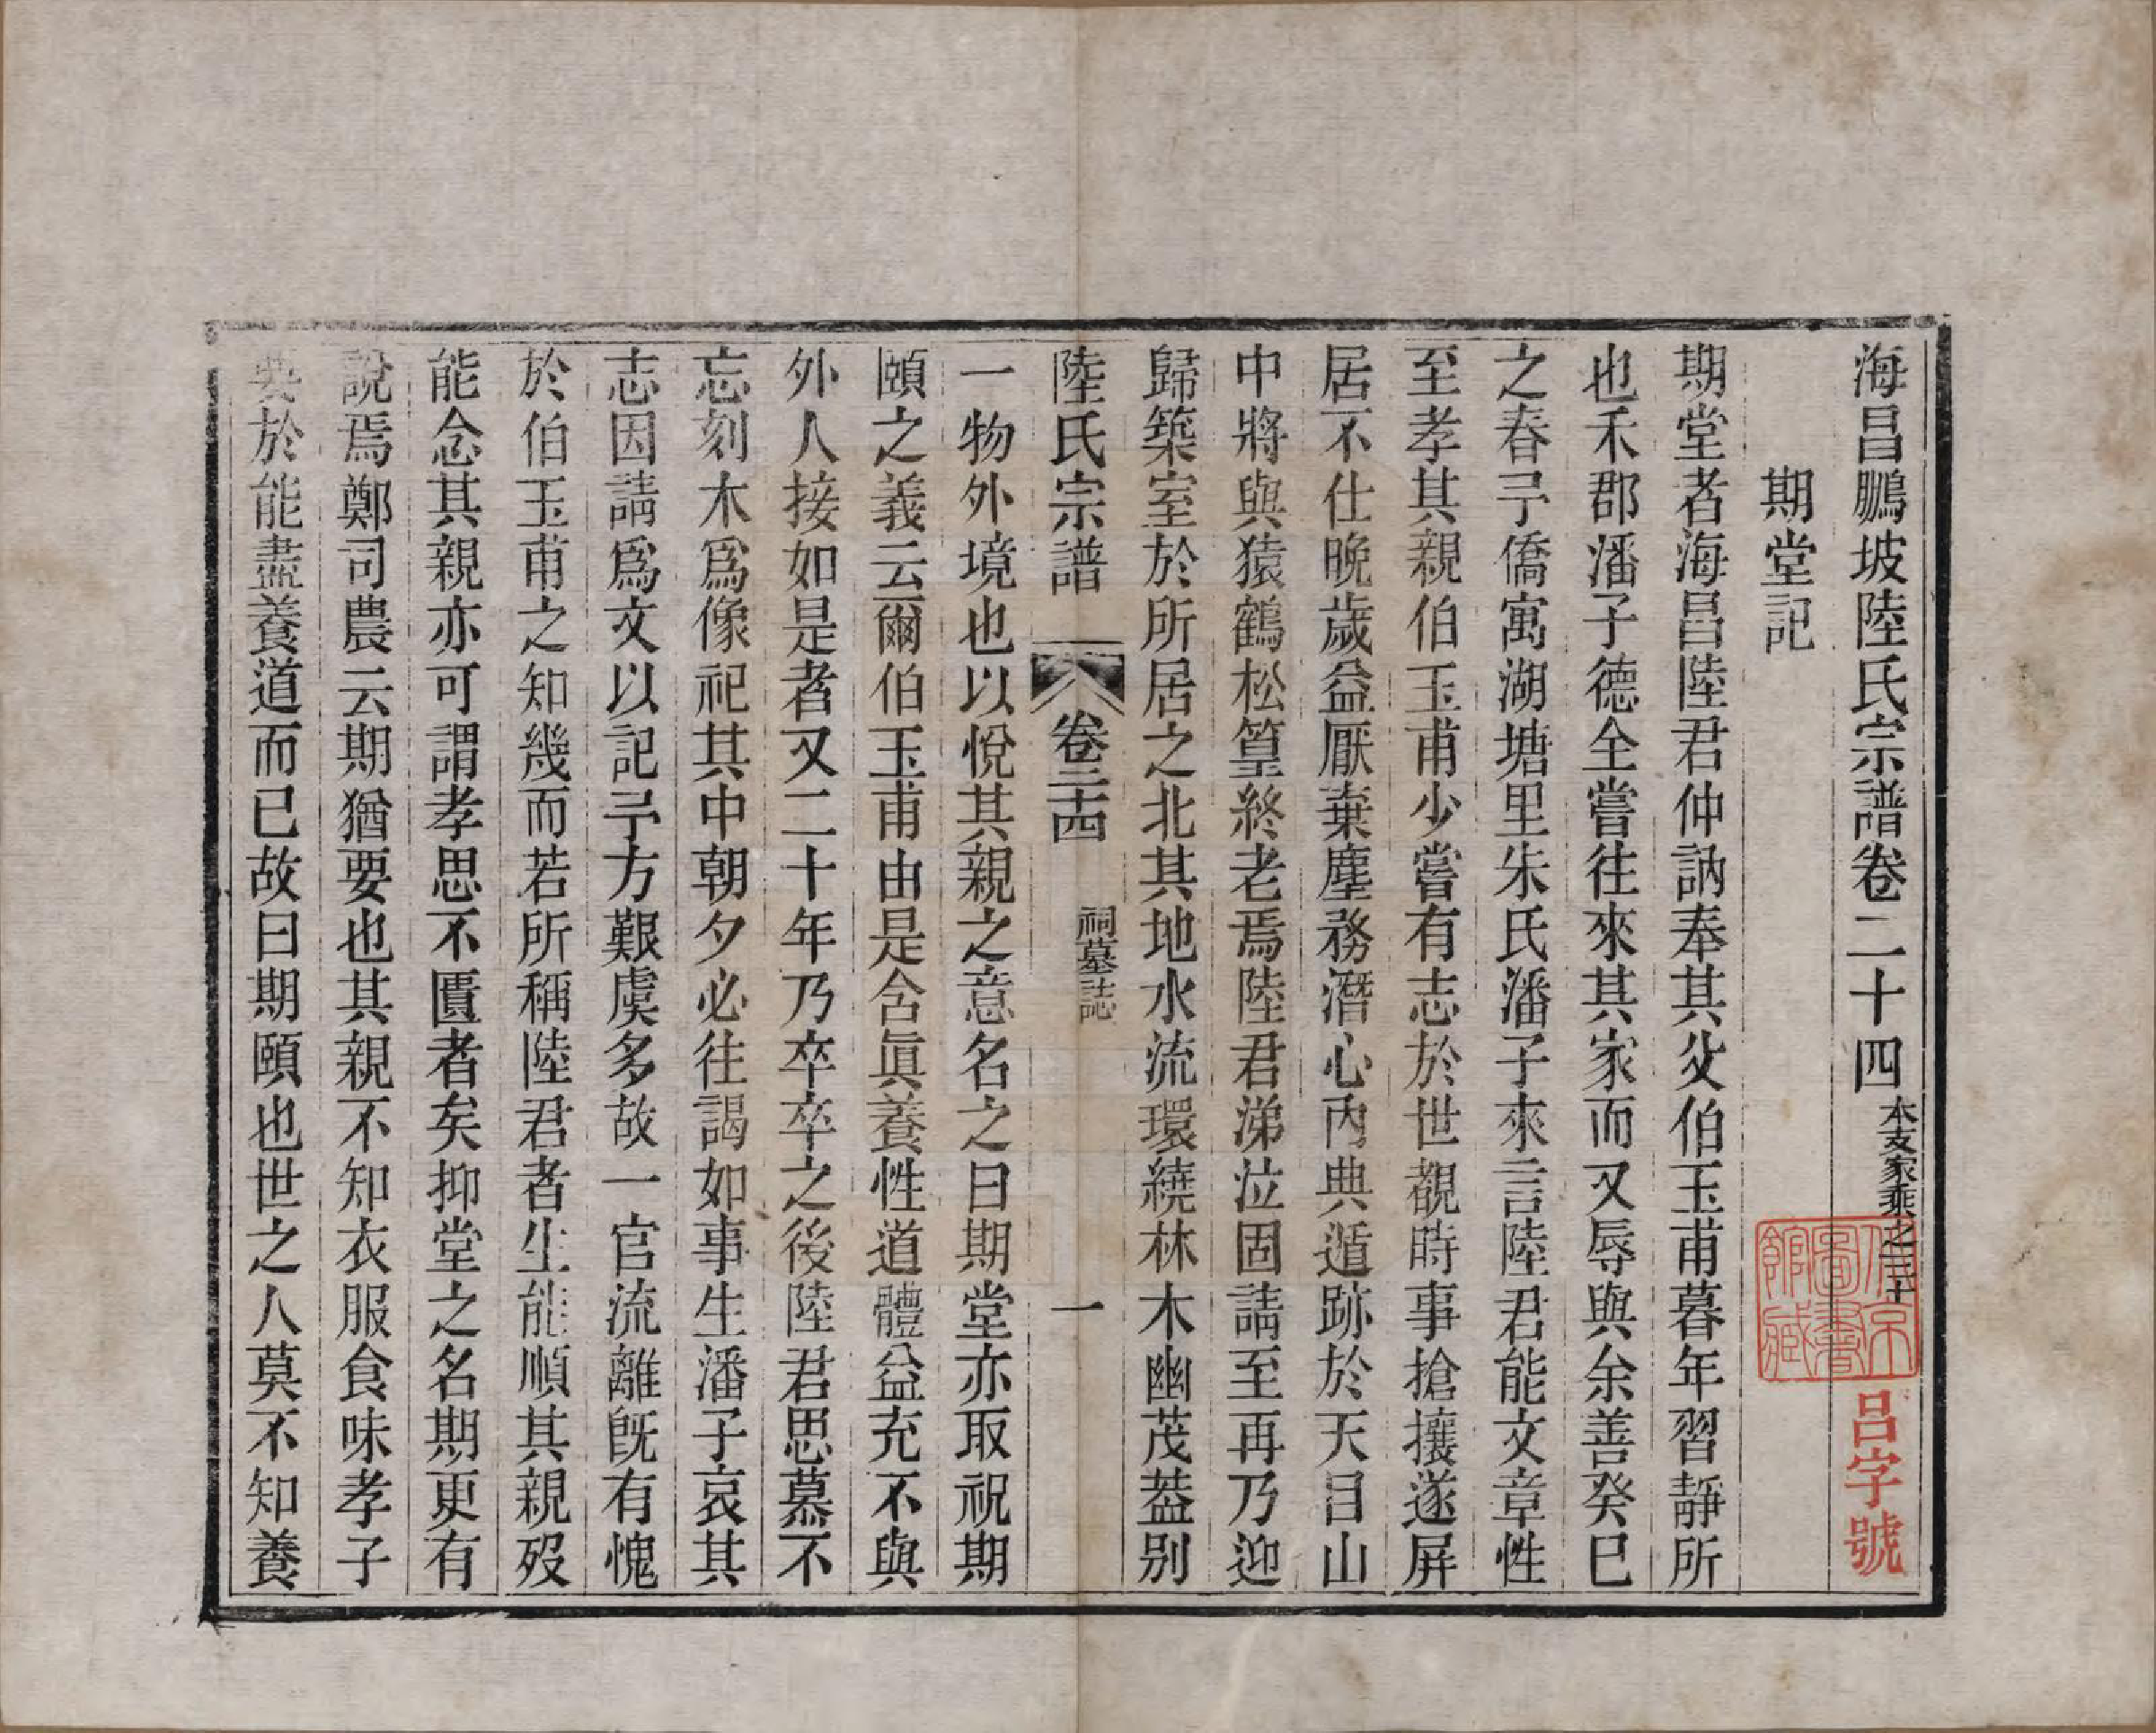 海昌鵬坡陸氏宗譜卷二十四
本支家乘之三十
北京圖書館藏
呂字號
期堂記
期堂者海昌陸君仲訥奉其父伯玉甫暮年習靜所
也禾郡潘子德全嘗往來其家而又辱與余善癸巳
之春予僑寓湖塘里朱氏潘子來言陸君能文章性
至孝其親伯玉甫少嘗有志於世覩時事搶攘遂屏
居不仕晚歲益厭棄塵務潛心內典遁跡於天目山
中將與猿鶴松篁終老焉陸君涕泣固請至再乃迎
歸築室於所居之北其地水流環繞林木幽茂葢別
陸氏宗譜
卷二十四
祠墓誌
一
一物外境也以悅其親之意名之曰期堂亦取祝期
頤之義云爾伯玉甫由是含眞養性道體益充不與
外人接如是者又二十年乃卒卒之後陸君思慕不
忘刻木爲像祀其中朝夕必往謁如事生潘子哀其
志因請爲文以記予方艱虞多故一官流離旣有愧
於伯玉甫之知幾而若所稱陸君者生能順其親歿
能念其親亦可謂孝思不匱者矣抑堂之名期更有
說焉鄭司農云期猶要也其親不知衣服食味孝子
要於能盡養道而已故曰期頤也世之人莫不知養